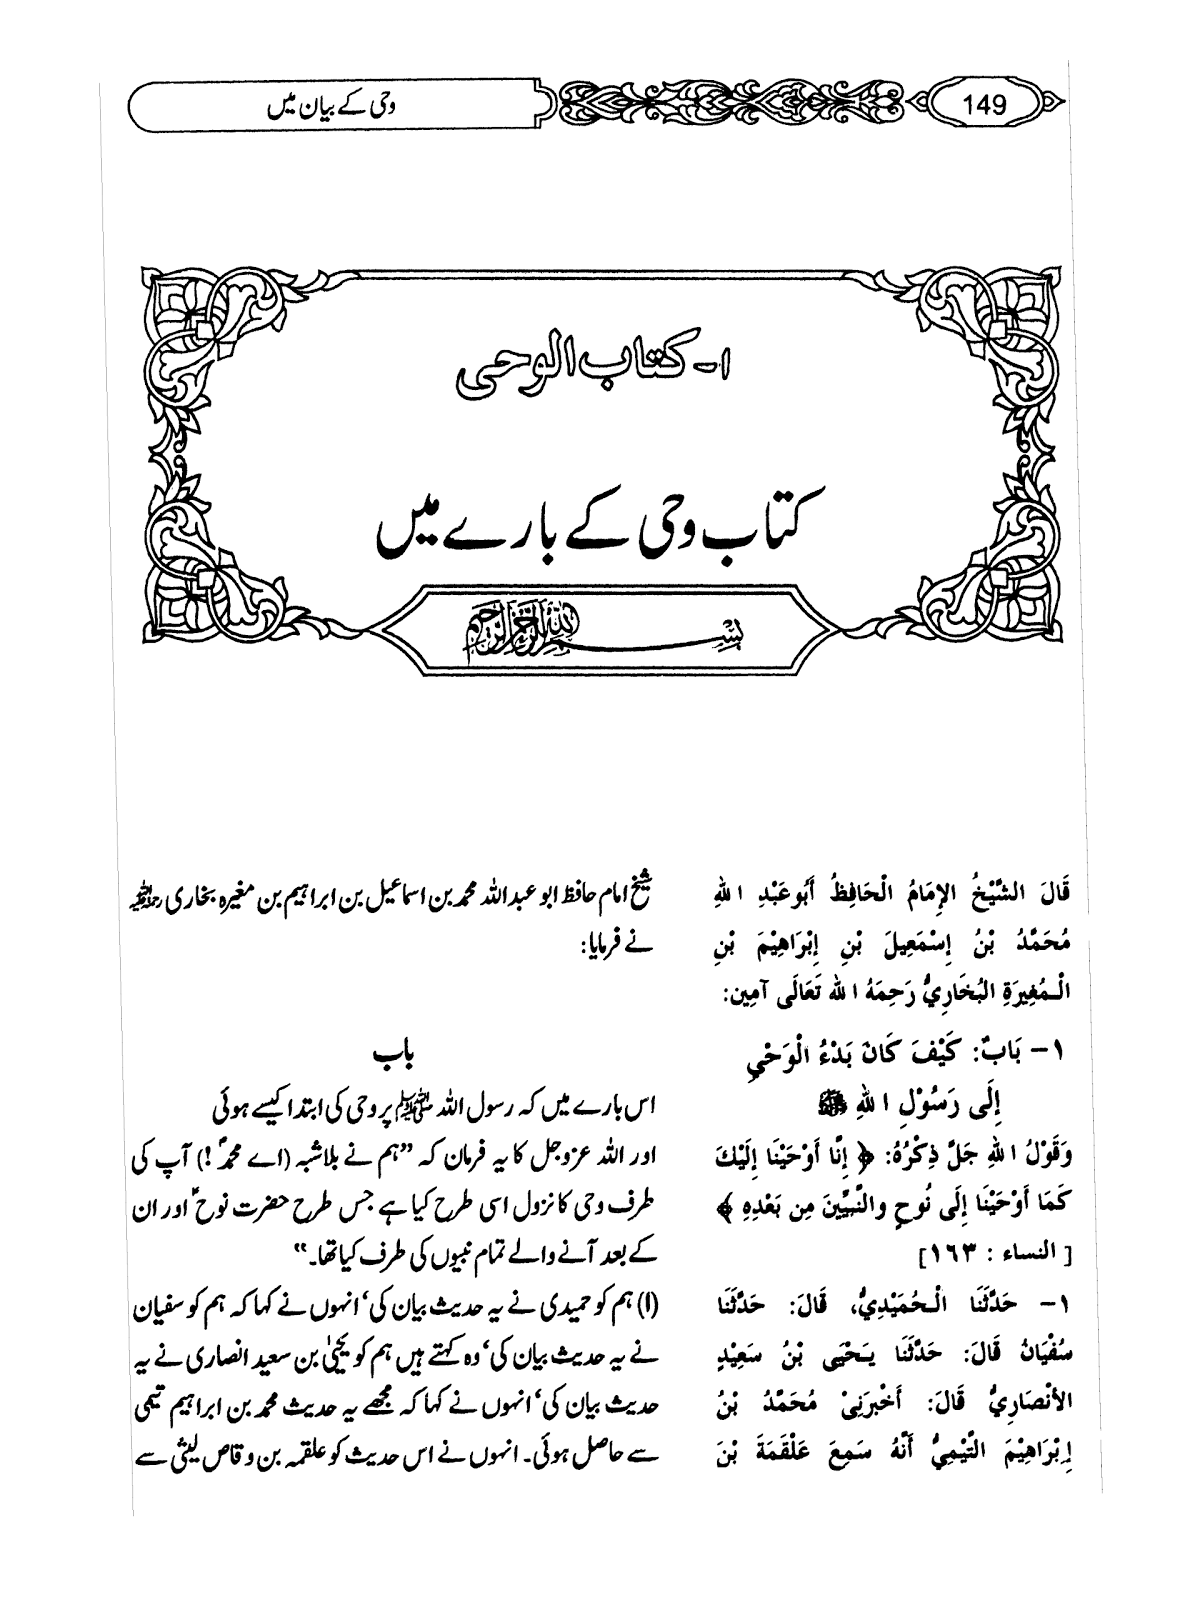 149
وحی کے بیان میں
۱- کتاب الوحی
کتاب وحی کے بارے میں
بسم الله الرحمن الرحیم
قَالَ الشَّيْخُ الإِمَامُ الْحَافِظُ أَبُوعَبْدِ اللهِ
مُحَمَّدُ بْنُ إِسْمَعِيلَ بْنِ إِبْرَاهِيْمَ بْنِ
الْمُغِيرَةِ الْبُخَارِيُّ رَحِمَهُ الله تَعَالَى آمِين:
١- بَابٌ: كَيْفَ كَانَ بَدْءُ الْوَحْيِ
إِلَى رَسُوْلِ اللهِ ﷺ
وَقَوْلُ اللهِ جَلَّ ذِكْرُهُ: ﴿ إِنَّا أَوْحَيْنَا إِلَيْكَ
كَمَا أَوْحَيْنَا إِلَى نُوحٍ والنَّبِيِّينَ مِن بَعْدِهِ ﴾
[ النساء : ١٦٣]
١- حَدَّثَنَا الْحُمَيْدِيُّ، قَالَ: حَدَّثَنَا
سُفْيَانُ قَالَ: حَدَّثَنَا يَحْيَى بْنُ سَعِيْدٍ
الأنْصَارِيُّ قَالَ: أَخْبَرَنِيْ مُحَمَّدُ بْنُ
إِبْرَاهِيْمَ التَّيْمِيُّ أَنَّهُ سَمِعَ عَلْقَمَةَ بْنَ
شیخ امام حافظ ابو عبداللہ محمد بن اسماعیل بن ابراہیم بن مغیرہ بخاری رحمۃ اللہ علیہ
نے فرمایا:
باب
اس بارے میں کہ رسول اللہ ﷺ پر وحی کی ابتدا کیسے ہوئی
اور اللہ عزوجل کا یہ فرمان کہ ”ہم نے بلاشبہ (اے محمدؐ !) آپ کی
طرف وحی کا نزول اسی طرح کیا ہے جس طرح حضرت نوحؑ اور ان
کے بعد آنے والے تمام نبیوں کی طرف کیا تھا۔“
(۱) ہم کو حمیدی نے یہ حدیث بیان کی‘ انہوں نے کہا کہ ہم کو سفیان
نے یہ حدیث بیان کی‘ وہ کہتے ہیں ہم کو یحییٰ بن سعید انصاری نے یہ
حدیث بیان کی‘ انہوں نے کہا کہ مجھے یہ حدیث محمد بن ابراہیم تیمی
سے حاصل ہوئی۔ انہوں نے اس حدیث کو علقمہ بن وقاص لیثی سے